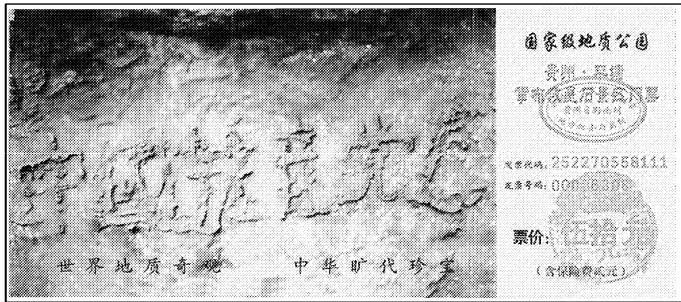 中国共産党亡
世界地质奇观 中华旷代珍宝
国家级地质公园
贵州·平塘
掌布救星石景区门票
发票代码: 252270558111
发票号码:
票价: 伍拾元
(含保险费贰元)